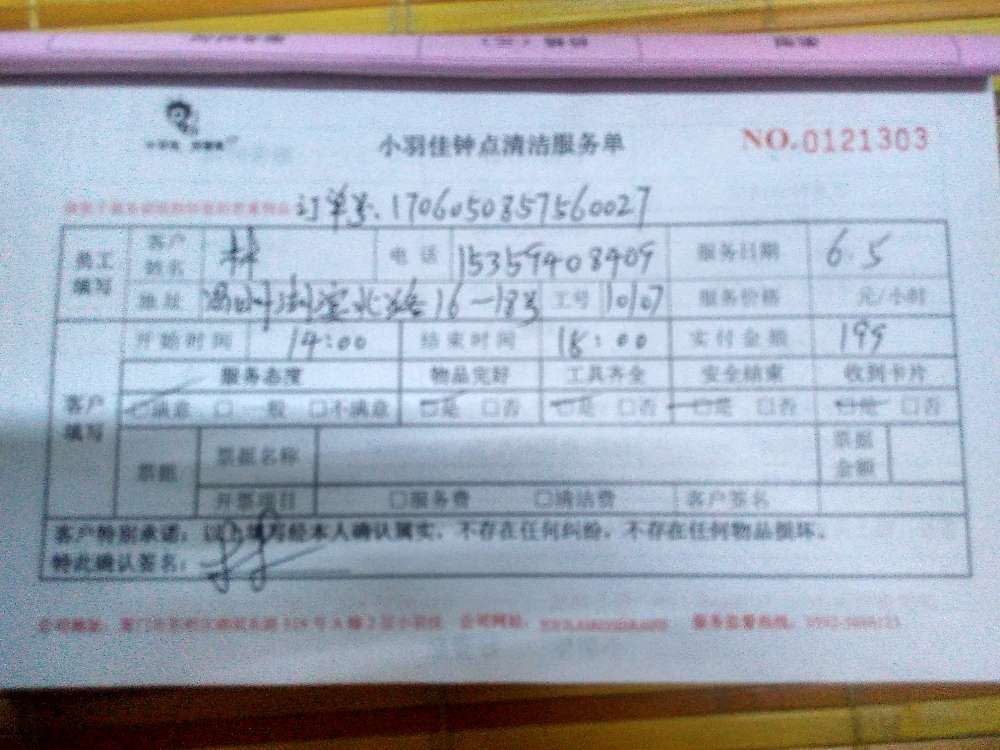 小羽佳钟点清洁服务单
NO.0121303
订单号:1706050857560027
员工填写 客户姓名 林 电话 15359408409 服务日期 6.5
地址 湖滨北路16-18号 工号 10107 服务价格 元/小时
客户填写 开始时间 14:00 结束时间 18:00 实付金额 199
服务态度 物品完好 工具齐全 安全结束 收到卡片
□满意 □一般 □不满意 □是 □否 □是 □否 □是 □否 □是 □否
票据 票据名称 票据金额
开票项目 □服务费 □清洁费 客户签名
客户特别承诺：以上填写经本人确认属实，不存在任何纠纷，不存在任何物品损坏。
特此确认签名：
公司地址： 公司网址： 服务监督热线：